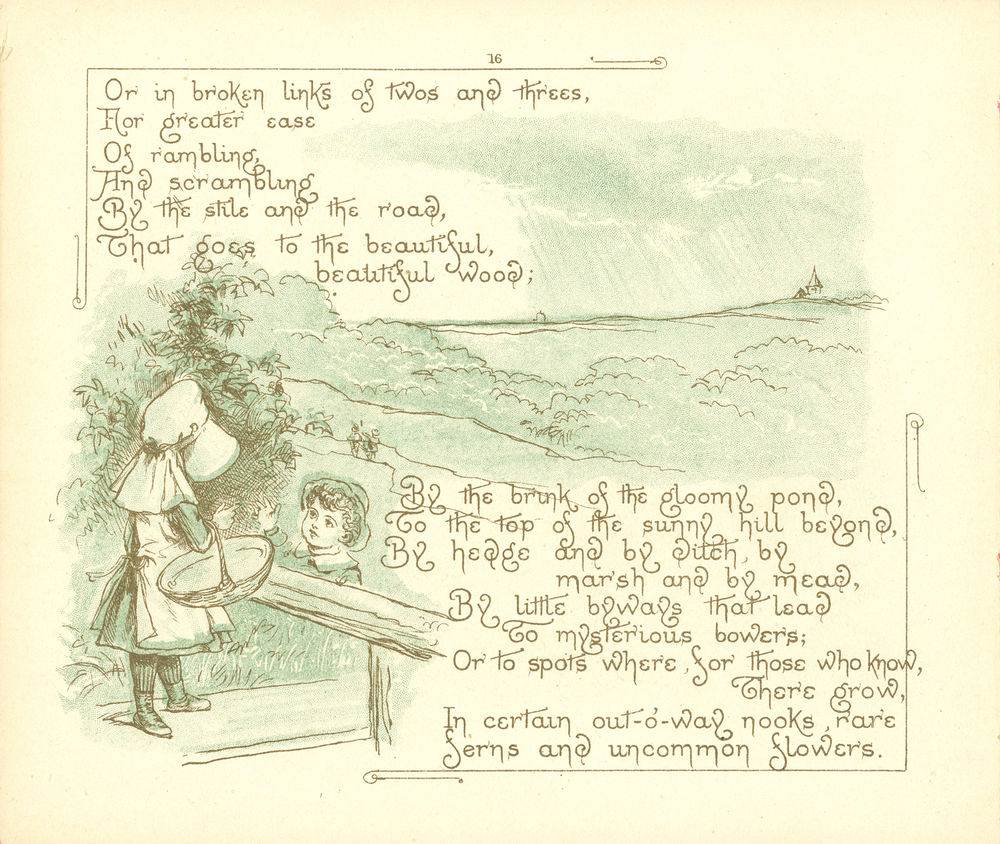 16
Or in broken links of twos and threes,
For greater ease
Of rambling,
And scrambling
By the stile and the road,
That goes to the beautiful,
beautiful wood;
By the brink of the gloomy pond,
To the top of the sunny hill beyond,
By hedge and by ditch, by
marsh and by mead,
By little byways that lead
To mysterious bowers;
Or to spots where, for those who know,
There grow,
In certain out-o'-way nooks, rare
ferns and uncommon flowers.